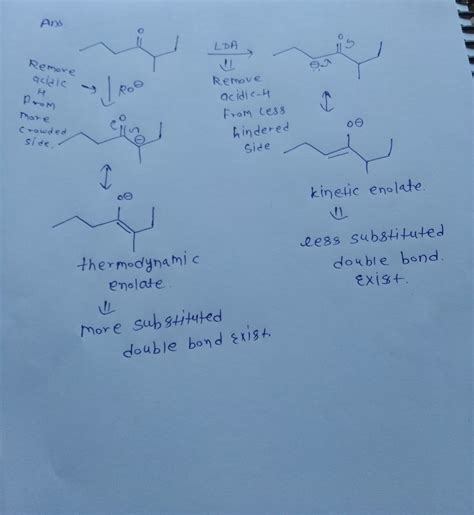 Ans
O
LDA
O
Remove
acidic
H
From
more
crowded
side.
RO⊖
⇓
Remove
acidic-H
From Less
hindered
side
⊖
O
⊖
O⊖
kinetic enolate.
⇓
less substituted
double bond.
Exist.
O⊖
thermodynamic
enolate.
⇓
more substituted
double bond Exist.